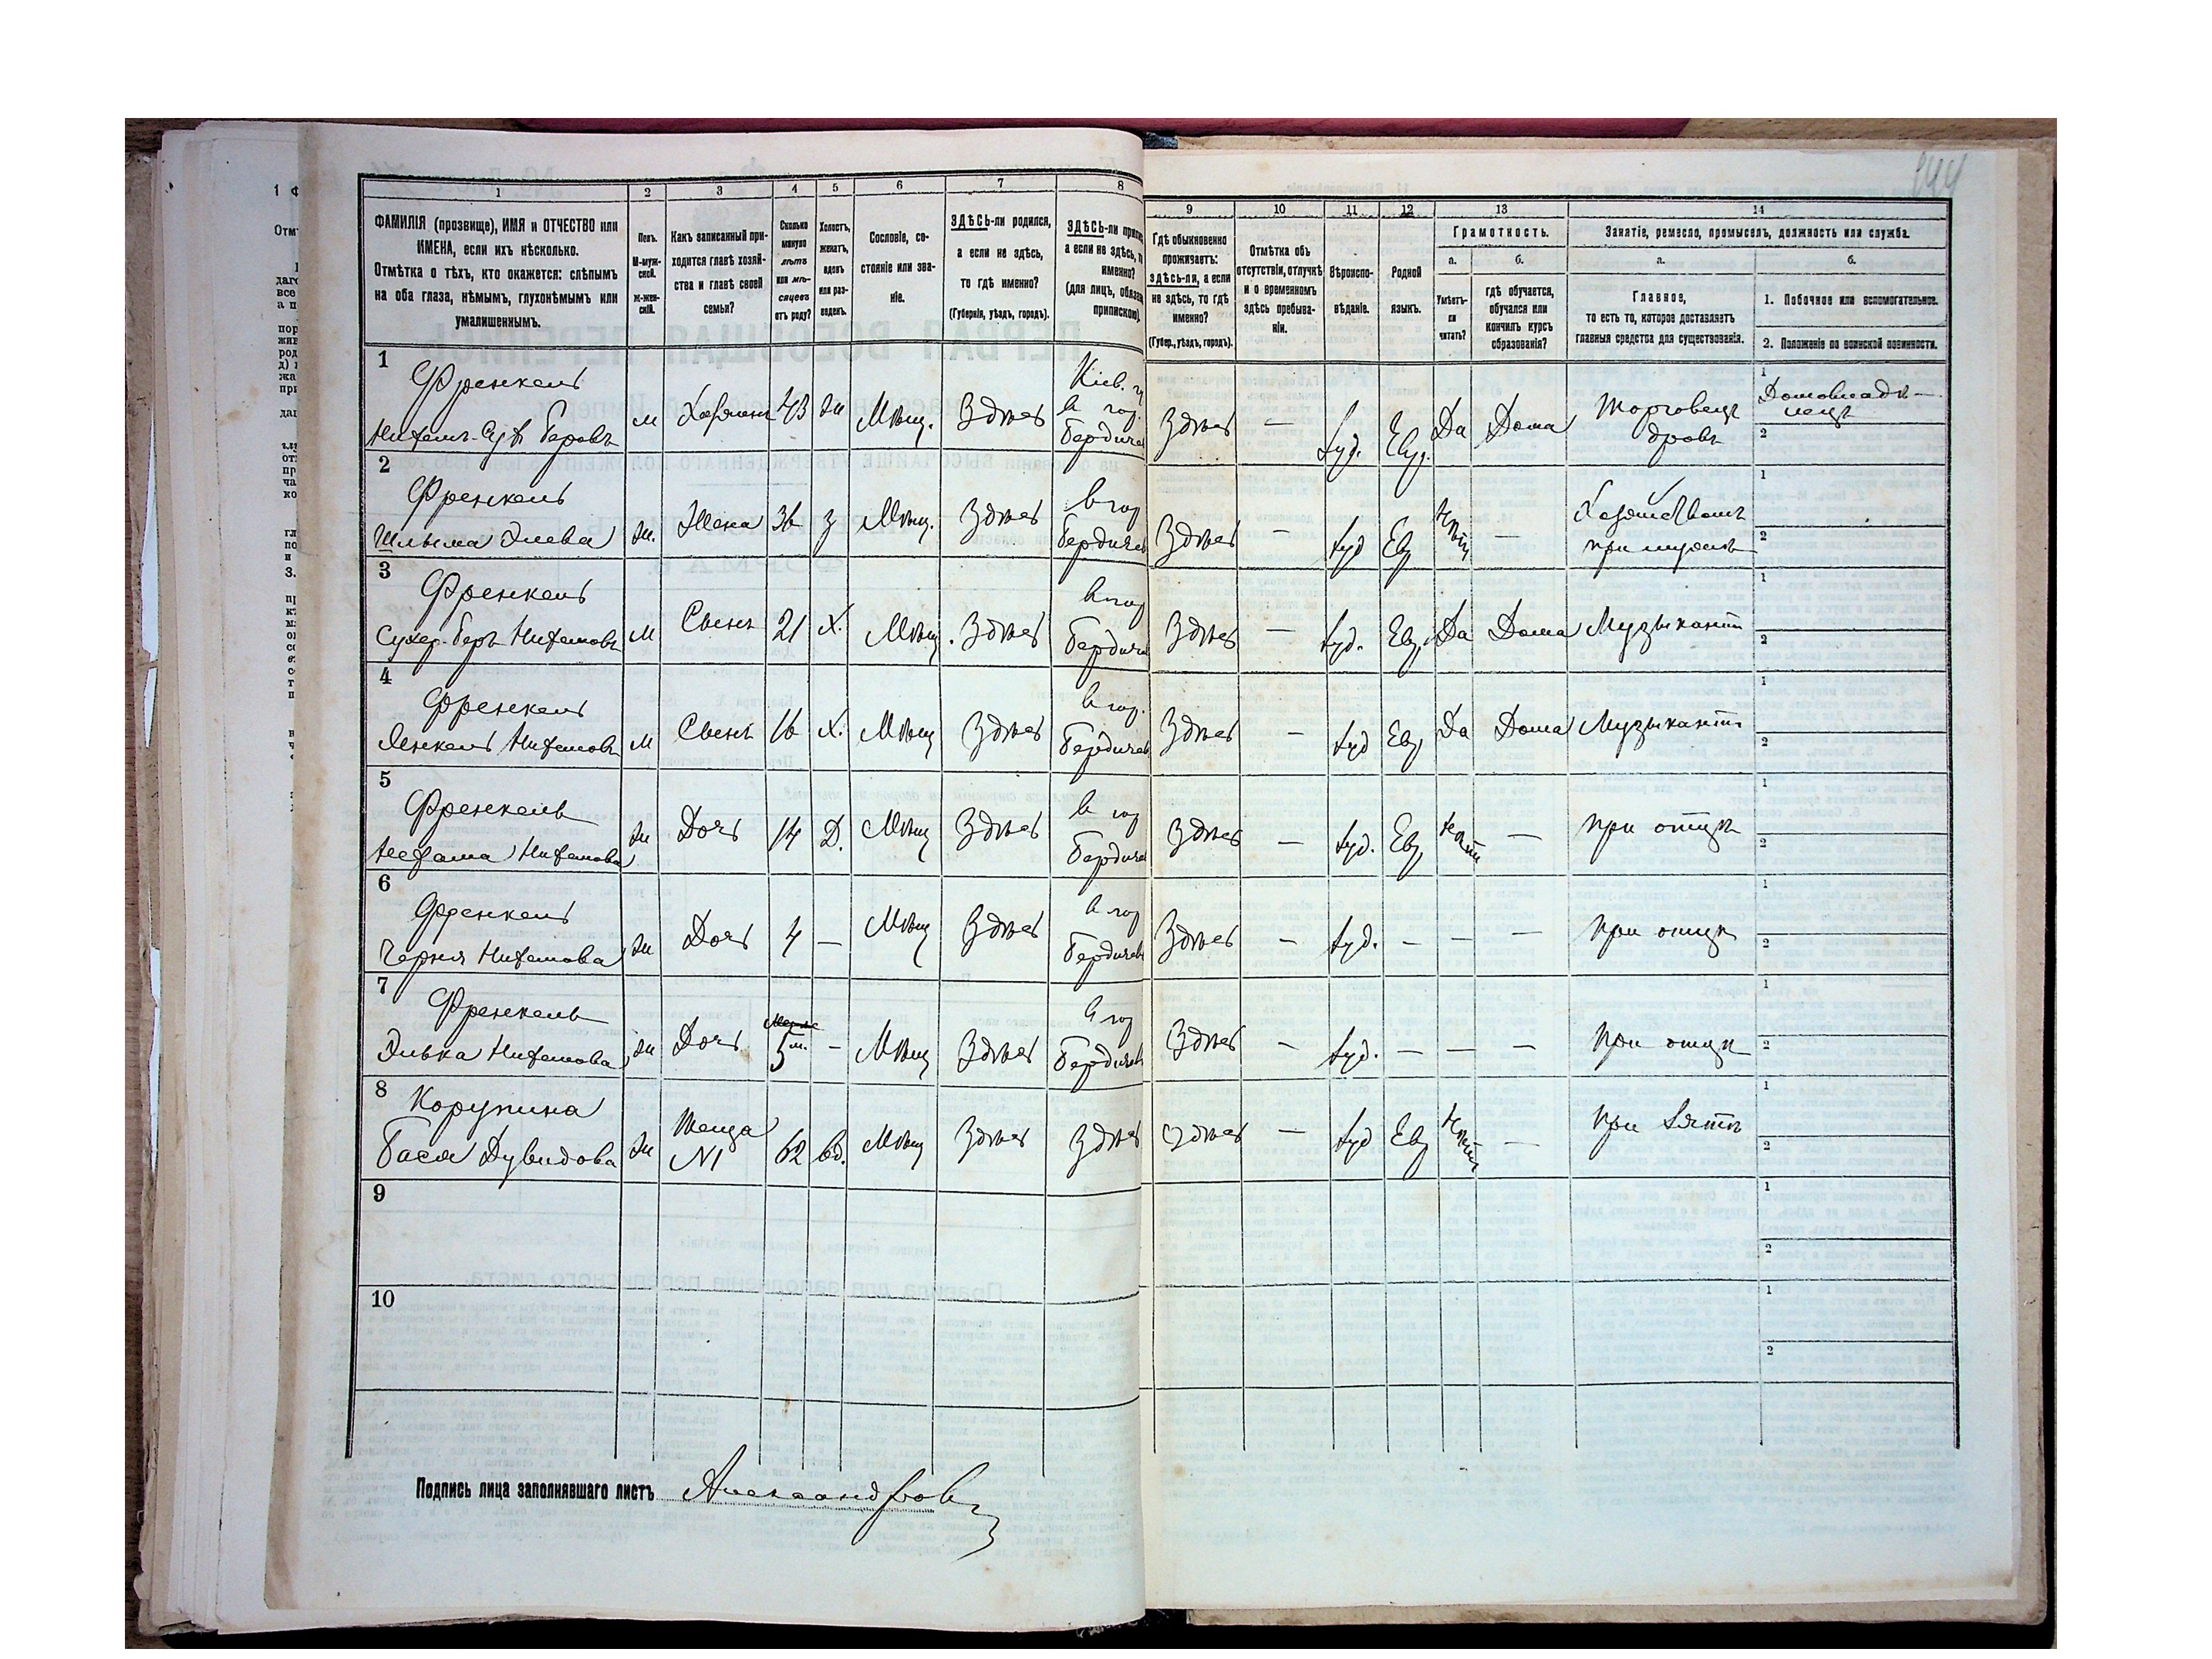 144
1 2 3 4 5 6 7 8 9 10 11 12 13 14
ФАМИЛІЯ (прозвище), ИМЯ и ОТЧЕСТВО или
ИМЕНА, если ихъ нѣсколько.
Отмѣтка о тѣхъ, кто окажется: слѣпымъ
на оба глаза, нѣмымъ, глухонѣмымъ или
умалишеннымъ.
Полъ.
М-муж-
ской.
Ж-жен-
скій.
Какъ записанный при-
ходится главѣ хозяй-
ства и главѣ своей
семьи?
Сколько
минуло
лѣтъ
или мѣ-
сяцевъ
отъ роду?
Холостъ,
женатъ,
вдовъ
или раз-
веденъ.
Сословіе, со-
стояніе или зва-
ніе.
ЗДѢСЬ-ли родился,
а если не здѣсь,
то гдѣ именно?
(Губернія, уѣздъ, городъ).
ЗДѢСЬ-ли
а если не здѣсь,
именно?
(для лицъ,
припискою).
Гдѣ обыкновенно
проживаетъ:
здѣсь-ли, а если
не здѣсь, то гдѣ
именно?
(Губер., уѣздъ, городъ).
Отмѣтка объ
отсутствіи, отлучкѣ
и о временномъ
здѣсь пребыва-
ніи.
Вѣроиспо-
вѣданіе.
Родной
языкъ.
Грамотность.
а. б.
Умѣетъ-
ли
читать?
гдѣ обучается,
обучался или
кончилъ курсъ
образованія?
Занятіе, ремесло, промыселъ, должность или служба.
а. б.
Главное,
то есть то, которое доставляетъ
главныя средства для существованія.
1. Побочное или вспомогательное.
2. Положеніе по воинской повинности.
1 Френкель м Хозяинъ 43 ж Мѣщ. Здѣсь Кіев. Здѣсь — Іуд. Евр. Да Дома Торговецъ 1 Домовладѣ-
Беровъ в гор. Бердиче дровъ лецъ
2
2 Френкель ж. Жена 36 з Мѣщ. Здѣсь в гор Здѣсь — Іуд Евр Нѣтъ — 1
Элева Бердичев при мужѣ 2
3 Френкель м Сынъ 21 Х. Мѣщ. Здѣсь в гор Здѣсь — Іуд. Евр. Да Дома Музыкантъ 1
Бердиче 2
4 Френкель м Сынъ 16 Х. Мѣщ Здѣсь в гор. Здѣсь — Іуд Евр Да Дома Музыкантъ 1
Янкель Бердичев 2
5 Френкель ж Дочь 14 Д. Мѣщ Здѣсь в гор Здѣсь — Іуд. Евр Нѣтъ — при отцѣ 1
Бердиче 2
6 Френкель ж Дочь 4 — Мѣщ Здѣсь в гор Здѣсь — Іуд. — — — при отцѣ 1
Черня Бердичев 2
7 Френкель ж Дочь 5 м. — Мѣщ Здѣсь в гор Здѣсь — Іуд. — — — при отцѣ 1
Элька Бердичев 2
8 Корупина ж Теща 62 вд. Мѣщ Здѣсь Здѣсь Здѣсь — Іуд Евр Нѣтъ — при зятѣ 1
Бася Дувидова №1 2
9 1
2
10 1
2
Подпись лица заполнявшаго листъ Александров